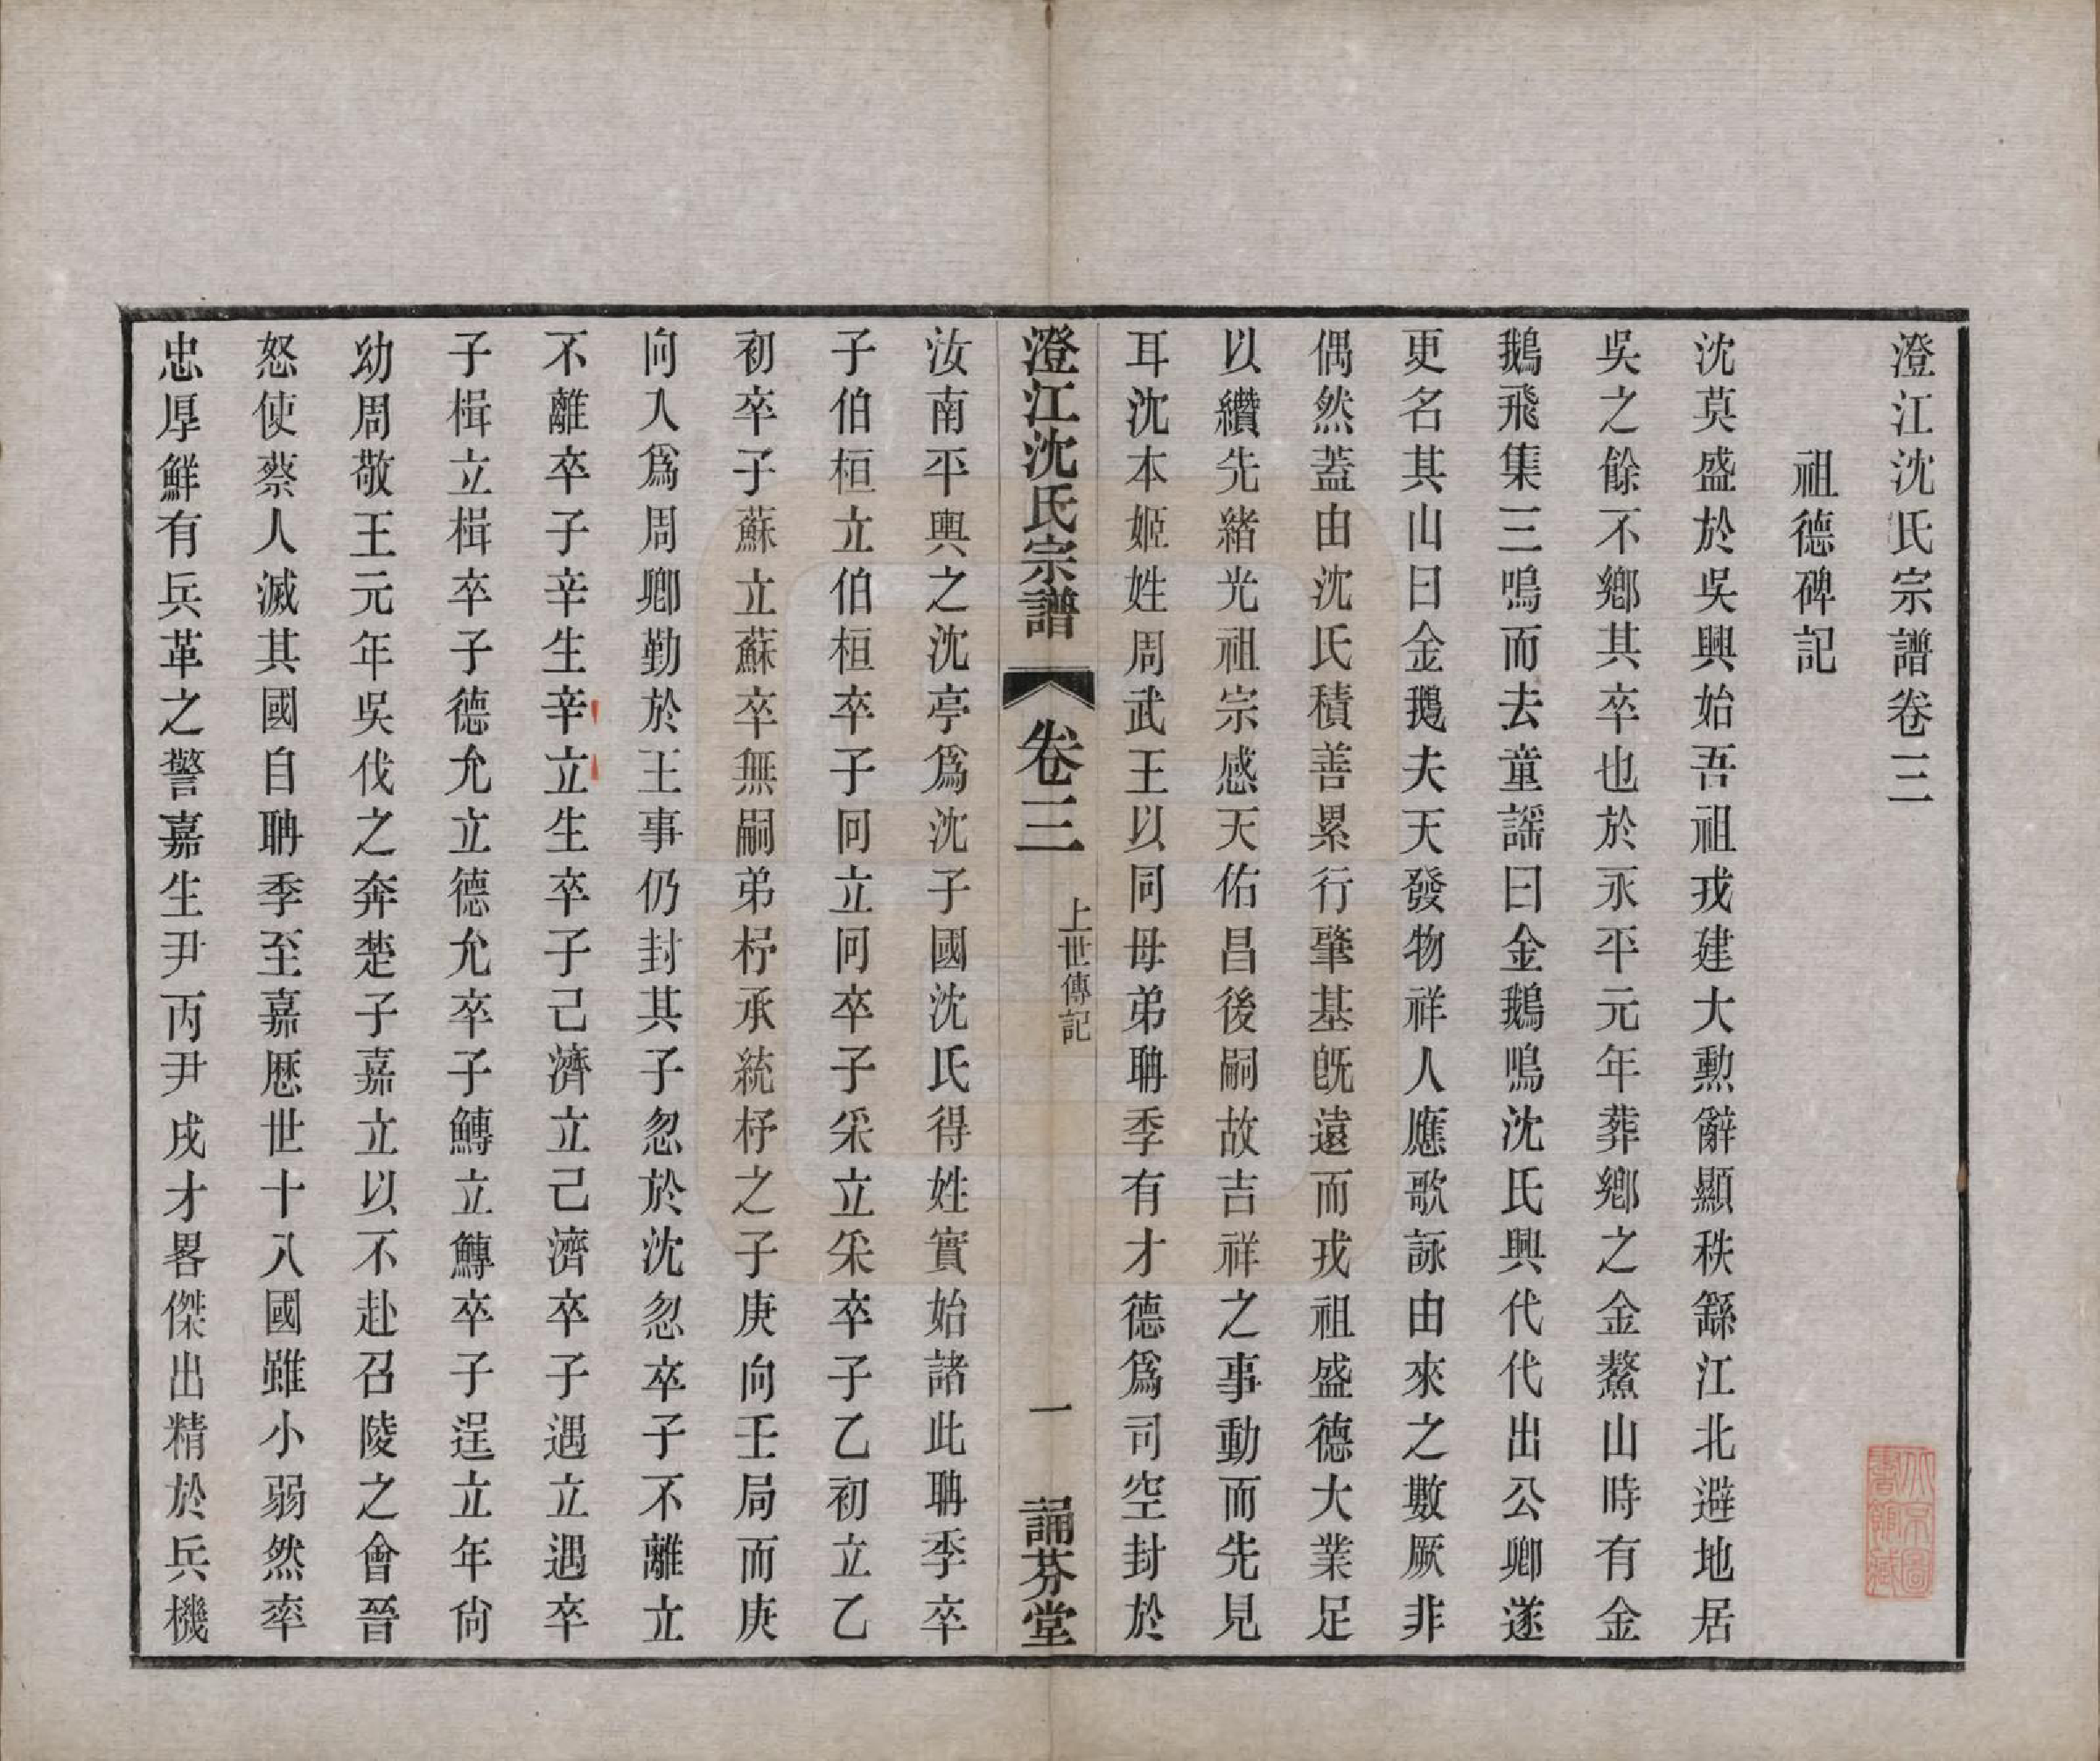 澄江沈氏宗譜卷三
祖德碑記
沈莫盛於吳興始吾祖戎建大勲辭顯秩繇江北避地居
吳之餘不鄉其卒也於永平元年葬鄉之金鰲山時有金
鵝飛集三鳴而去童謠曰金鵝鳴沈氏興代代出公卿遂
更名其山曰金鵝夫天發物祥人應歌詠由來之數厥非
偶然蓋由沈氏積善累行肇基旣遠而戎祖盛德大業足
以纘先緒光祖宗感天佑昌後嗣故吉祥之事動而先見
耳沈本姬姓周武王以同母弟聃季有才德爲司空封於
澄江沈氏宗譜
卷三
上世傳記
一
誦芬堂
汝南平輿之沈亭爲沈子國沈氏得姓實始諸此聃季卒
子伯桓立伯桓卒子冋立冋卒子采立采卒子乙初立乙
初卒子蘇立蘇卒無嗣弟杼承統杼之子庚向壬局而庚
向入爲周卿勤於王事仍封其子忽於沈忽卒子不離立
不離卒子辛生辛立生卒子己濟立己濟卒子遇立遇卒
子楫立楫卒子德允立德允卒子鱄立鱄卒子逞立年尙
幼周敬王元年吳伐之奔楚子嘉立以不赴召陵之會晉
怒使蔡人滅其國自聃季至嘉歷世十八國雖小弱然率
忠厚鮮有兵革之警嘉生尹丙尹戌才畧傑出精於兵機